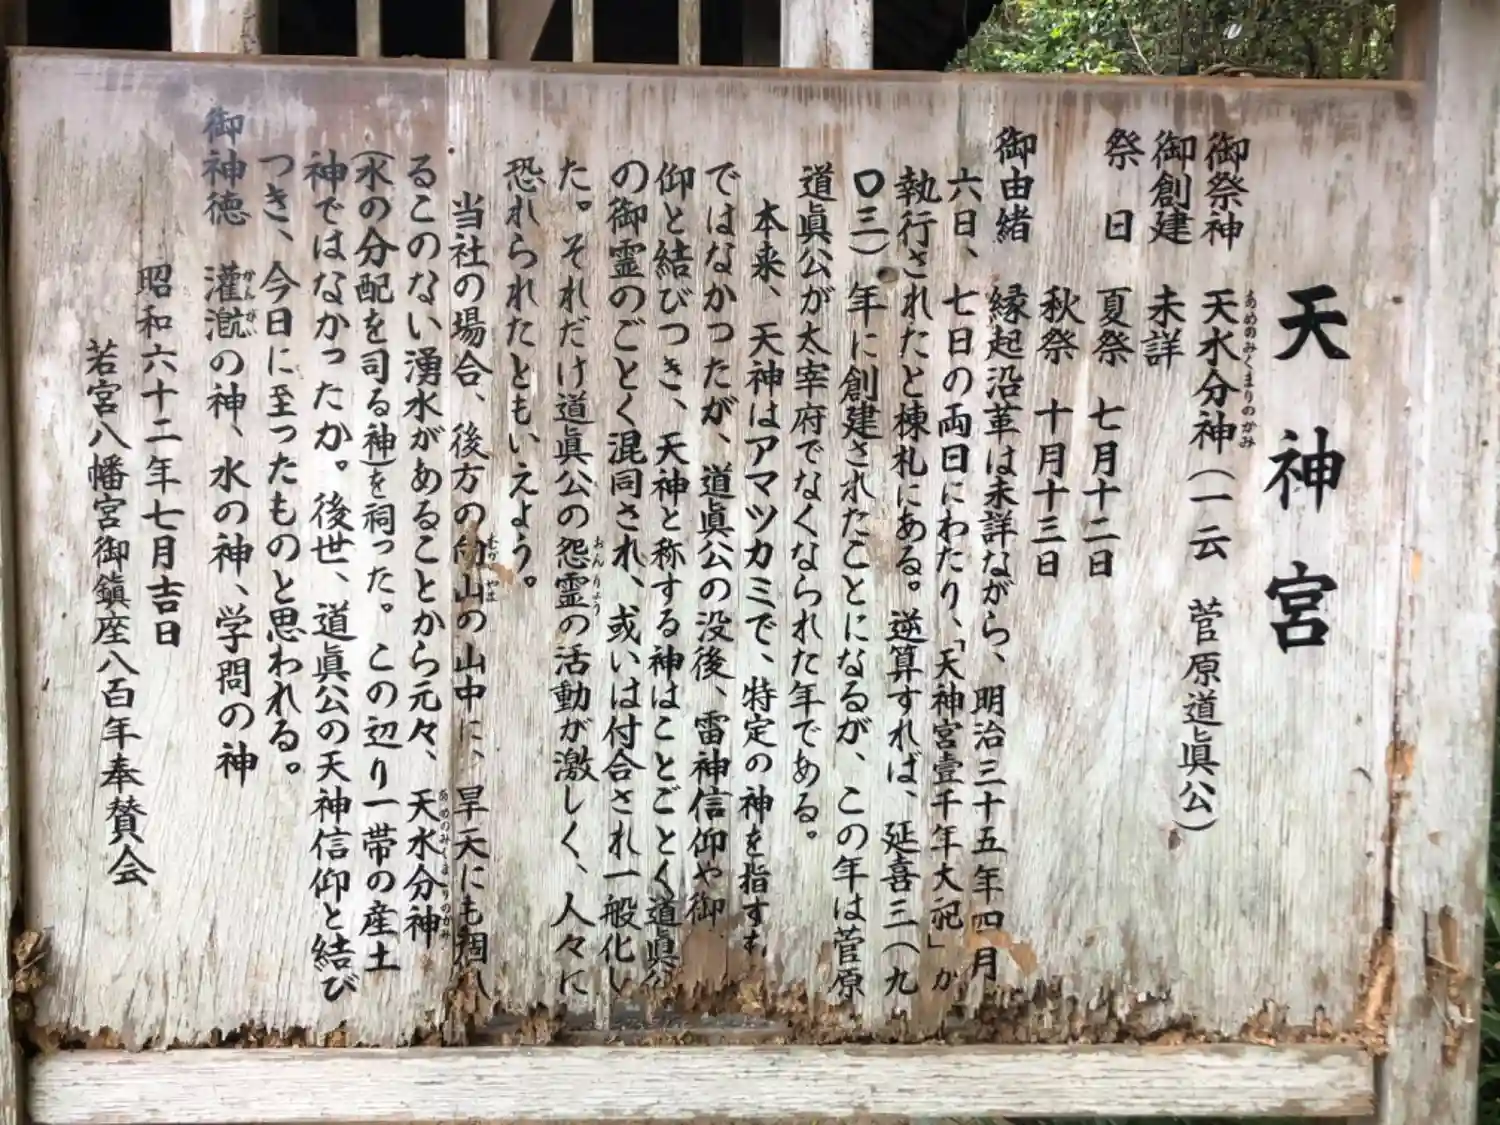 天神宮
御祭神 天水分神（一云 菅原道眞公）
あめのみくまりのかみ
御創建 未詳
祭日 夏祭 七月十二日
秋祭 十月十三日
御由緒 縁起沿革は未詳ながら、明治三十五年四月
六日、七日の両日にわたり、「天神宮壹千年大祀」が
執行されたと棟札にある。逆算すれば、延喜三（九
〇三）年に創建されたことになるが、この年は菅原
道眞公が太宰府でなくなられた年である。
本来、天神はアマツカミで、特定の神を指すも
ではなかったが、道眞公の没後、雷神信仰や御
仰と結びつき、天神と称する神はことごとく道眞公
の御霊のごとく混同され、或いは付合され一般化し
た。それだけ道眞公の怨霊の活動が激しく、人々に
おんりょう
恐れられたともいえよう。
当社の場合、後方の向山の山中に、旱天にも涸れ
むかやま
るこのない湧水があることから元々、天水分神
あめのみくまりのかみ
（水の分配を司る神）を祠った。この辺り一帯の産土
神ではなかったか。後世、道眞公の天神信仰と結び
つき、今日に至ったものと思われる。
御神徳 灌漑の神、水の神、学問の神
かんがい
昭和六十二年七月吉日
若宮八幡宮御鎮座八百年奉賛会